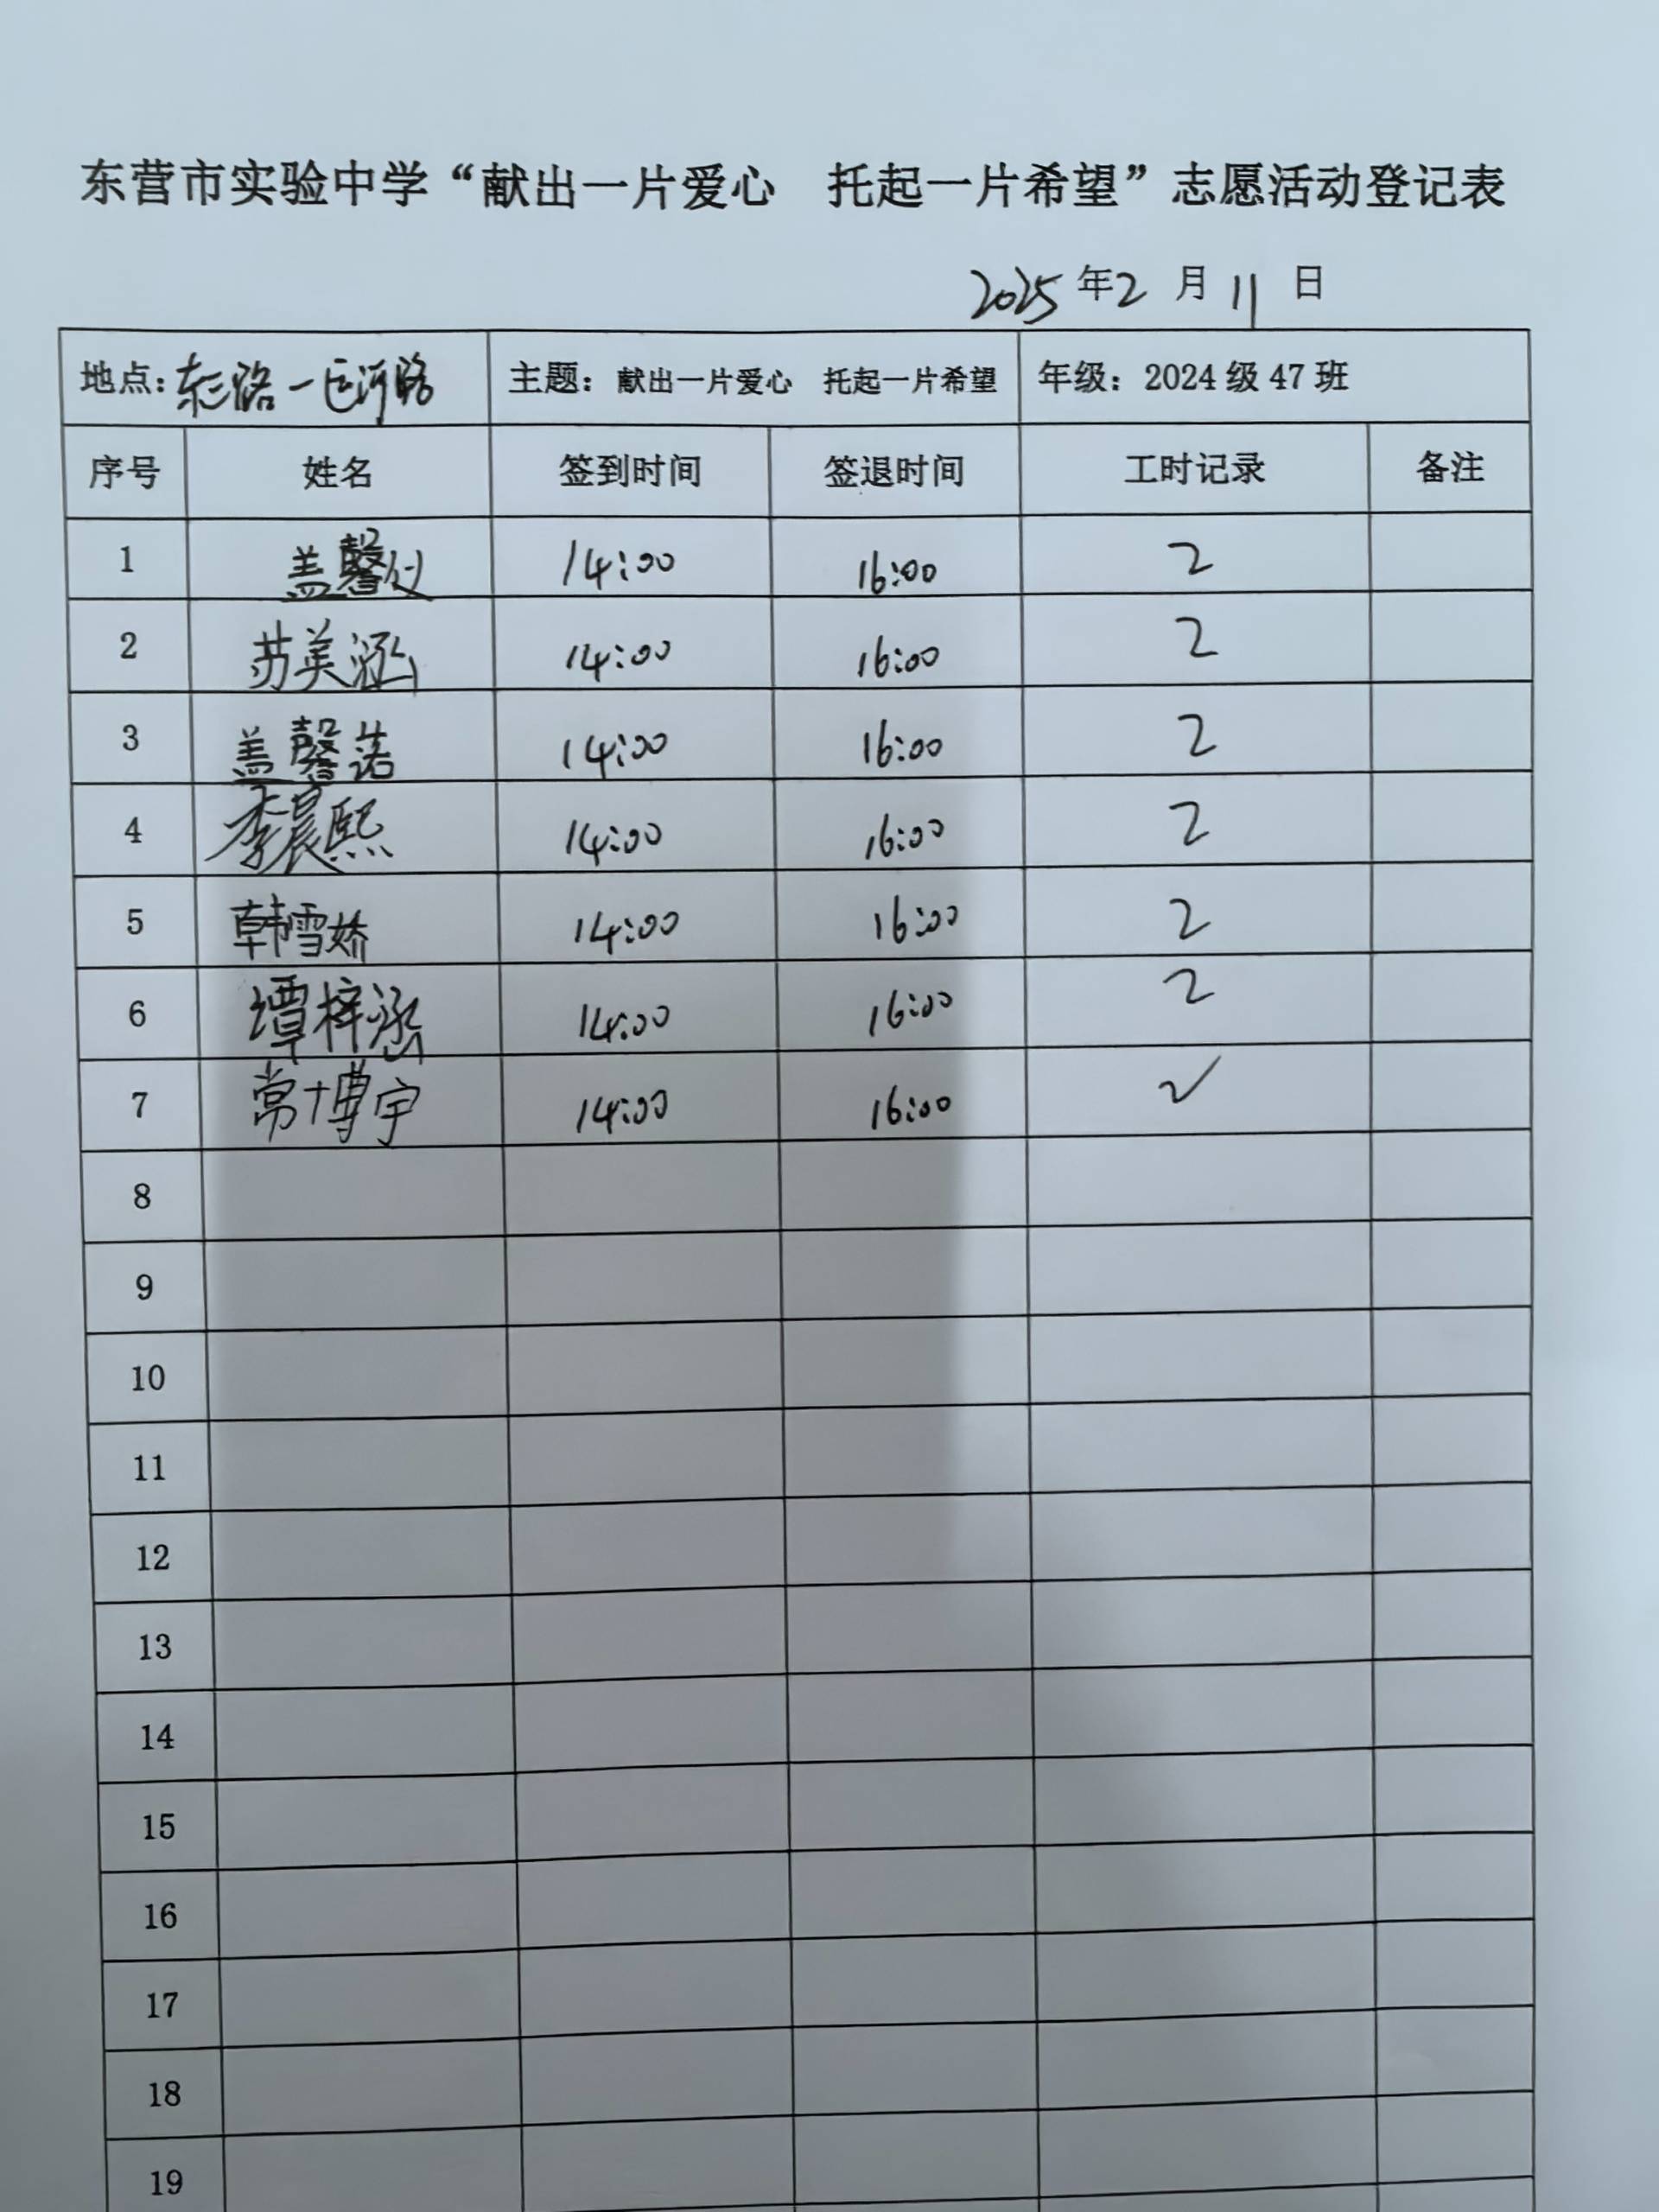 东营市实验中学“献出一片爱心 托起一片希望”志愿活动登记表
2025年2月11日
地点：东三路一运河路 主题：献出一片爱心 托起一片希望 年级：2024级47班
序号 姓名 签到时间 签退时间 工时记录 备注
1 盖馨 14:00 16:00 2
2 苏美涵 14:00 16:00 2
3 盖馨诺 14:00 16:00 2
4 李晨熙 14:00 16:00 2
5 韩雪娇 14:00 16:00 2
6 谭梓涵 14:00 16:00 2
7 常博宇 14:00 16:00 2
8
9
10
11
12
13
14
15
16
17
18
19